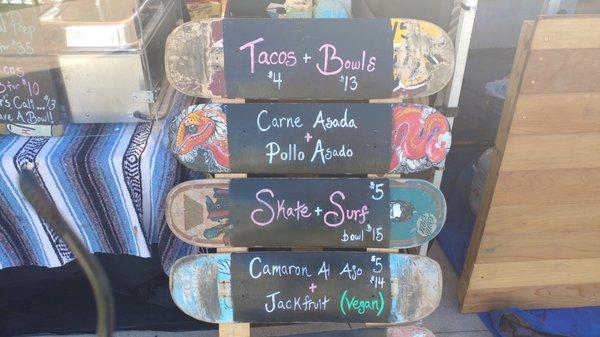 Tacos + Bowls
$4 $13
Carne Asada
+
Pollo Asado
Skate + Surf $5
bowl $15
Camaron Al Ajo $5
+ $14
Jackfruit (Vegan)
Prep
35
acos
for $10
r's Call... $13
ave A Bowl!